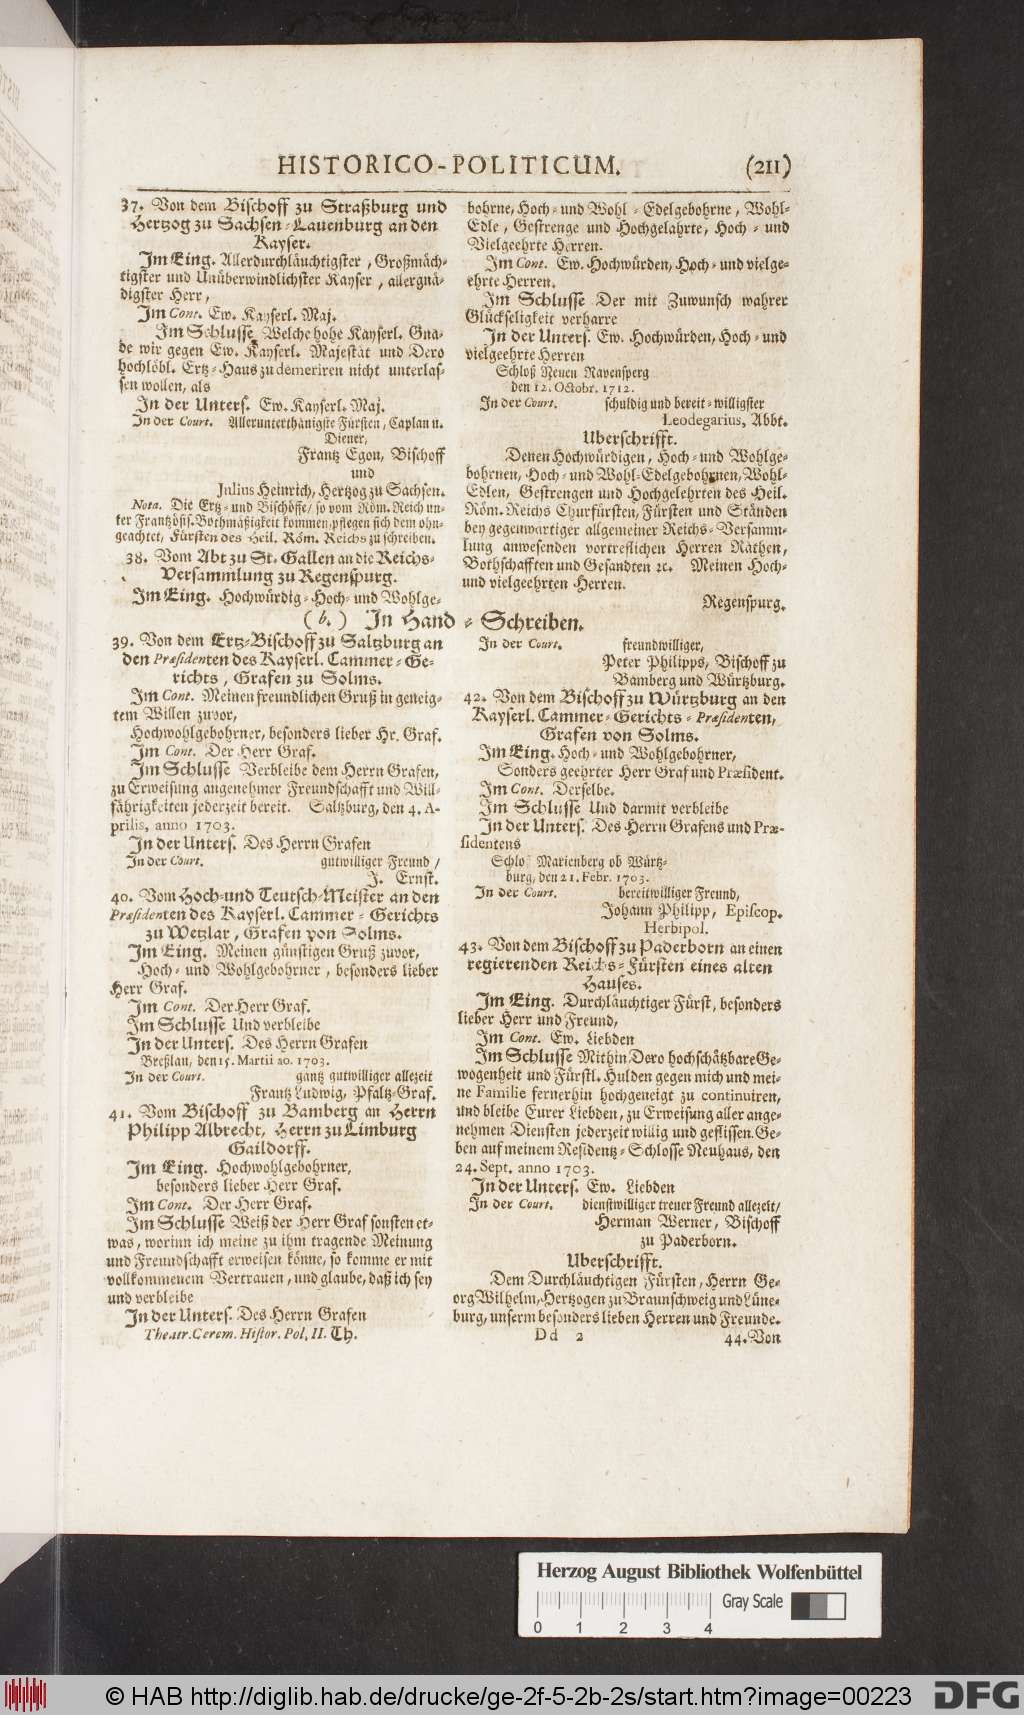 HISTORICO-POLITICUM. (211)
37. Von dem Bischoff zu Straßburg und
Hertzog zu Sachsen-Lauenburg an den
Kayser.
Im Eing. Allerdurchläuchtigster, Großmäch-
tigster und Unüberwindlichster Kayser, allergnä-
digster Herr,
Im Cont. Ew. Kayserl. Maj.
Im Schlusse Welche hohe Kayserl. Gna-
de wir gegen Ew. Kayserl. Majestät und Dero
hochlöbl. Ertz-Haus zu demeriren nicht unterlas-
sen wollen, als
In der Unters. Ew. Kayserl. Maj.
In der Court. Allerunterthänigste Fürsten, Caplan u.
Diener,
Frantz Egon, Bischoff
und
Julius Heinrich, Hertzog zu Sachsen.
Nota. Die Ertz- und Bischöffe/ so vom Röm. Reich un-
ter Frantzösis. Bothmäßigkeit kommen, pflegen sich dem ohn-
geachtet, Fürsten des Heil. Röm. Reichs zu schreiben.
38. Vom Abt zu St. Gallen an die Reichs-
Versammlung zu Regenspurg.
Im Eing. Hochwürdig-Hoch- und Wohlge-
bohrne, Hoch- und Wohl-Edelgebohrne, Wohl-
Edle, Gestrenge und Hochgelahrte, Hoch- und
Vielgeehrte Herren.
Im Cont. Ew. Hochwürden, Hoch- und vielge-
ehrte Herren.
Im Schlusse Der mit Zuwunsch wahrer
Glückseligkeit verharre
In der Unters. Ew. Hochwürden, Hoch- und
vielgeehrte Herren
Schloß Neuen Ravensperg
den 12. Octobr. 1712.
In der Court. schuldig und bereit-willigster
Leodegarius, Abbt.
Uberschrifft.
Denen Hochwürdigen, Hoch- und Wohlge-
bohrnen, Hoch- und Wohl-Edelgebohrnen, Wohl-
Edlen, Gestrengen und Hochgelehrten des Heil.
Röm. Reichs Churfürsten, Fürsten und Ständen
bey gegenwärtiger allgemeiner Reichs-Versamm-
lung anwesenden vortreflichen Herren Räthen,
Bothschafften und Gesandten ꝛc. Meinen Hoch-
und vielgeehrten Herren.
Regenspurg.
(b.) In Hand-Schreiben.
39. Von dem Ertz-Bischoff zu Saltzburg an
den Præsidenten des Kayserl. Cammer-Ge-
richts, Grafen zu Solms.
Im Cont. Meinen freundlichen Gruß in geneig-
tem Willen zuvor,
Hochwohlgebohrner, besonders lieber Hr. Graf.
Im Cont. Der Herr Graf.
Im Schlusse Verbleibe dem Herrn Grafen,
zu Erweisung angenehmer Freundschafft und Will-
fährigkeiten jederzeit bereit. Saltzburg, den 4. A-
prilis, anno 1703.
In der Unters. Des Herrn Grafen
In der Court. gutwilliger Freund /
J. Ernst.
40. Vom Hoch- und Teutsch-Meister an den
Præsidenten des Kayserl. Cammer-Gerichts
zu Wetzlar, Grafen von Solms.
Im Eing. Meinen günstigen Gruß zuvor,
Hoch- und Wohlgebohrner, besonders lieber
Herr Graf.
Im Cont. Der Herr Graf.
Im Schlusse Und verbleibe
In der Unters. Des Herrn Grafen
Breßlau, den 15. Martii ao. 1703.
In der Court. gantz gutwilliger allezeit
Frantz Ludwig, Pfaltz-Graf.
41. Vom Bischoff zu Bamberg an Herrn
Philipp Albrecht, Herrn zu Limburg
Gaildorff.
Im Eing. Hochwohlgebohrner,
besonders lieber Herr Graf.
Im Cont. Der Herr Graf.
Im Schlusse Weiß der Herr Graf sonsten et-
was, worinn ich meine zu ihm tragende Meinung
und Freundschafft erweisen könne, so komme er mit
vollkommenem Vertrauen, und glaube, daß ich sey
und verbleibe
In der Unters. Des Herrn Grafen
Theatr. Cerem. Histor. Pol. II. Th.
In der Court. freundwilliger,
Peter Philipps, Bischoff zu
Bamberg und Würtzburg.
42. Von dem Bischoff zu Würtzburg an den
Kayserl. Cammer-Gerichts-Præsidenten,
Grafen von Solms.
Im Eing. Hoch- und Wohlgebohrner,
Sonders geehrter Herr Graf und Præsident.
Im Cont. Derselbe.
Im Schlusse Und darmit verbleibe
In der Unters. Des Herrn Grafens und Præ-
sidentens
Schloß Marienberg ob Würtz-
burg, den 21. Febr. 1703.
In der Court. bereitwilliger Freund,
Johann Philipp, Episcop.
Herbipol.
43. Von dem Bischoff zu Paderborn an einen
regierenden Reichs-Fürsten eines alten
Hauses.
Im Eing. Durchläuchtiger Fürst, besonders
lieber Herr und Freund,
Im Cont. Ew. Liebden
Im Schlusse Mithin Dero hochschätzbare Ge-
wogenheit und Fürstl. Hulden gegen mich und mei-
ne Familie fernerhin hochgeneigt zu continuiren,
und bleibe Eurer Liebden, zu Erweisung aller ange-
nehmen Diensten jederzeit willig und geflissen. Ge-
ben auf meinem Residentz-Schlosse Neuhaus, den
24. Sept. anno 1703.
In der Unters. Ew. Liebden
In der Court. dienstwilliger treuer Freund allezeit/
Herman Werner, Bischoff
zu Paderborn.
Uberschrifft.
Dem Durchläuchtigen Fürsten, Herrn Ge-
org Wilhelm, Hertzogen zu Braunschweig und Lüne-
burg, unserm besonders lieben Herren und Freunde.
Dd 2 44. Von
Herzog August Bibliothek Wolfenbüttel
Gray Scale
0 1 2 3 4
© HAB http://diglib.hab.de/drucke/ge-2f-5-2b-2s/start.htm?image=00223
DFG